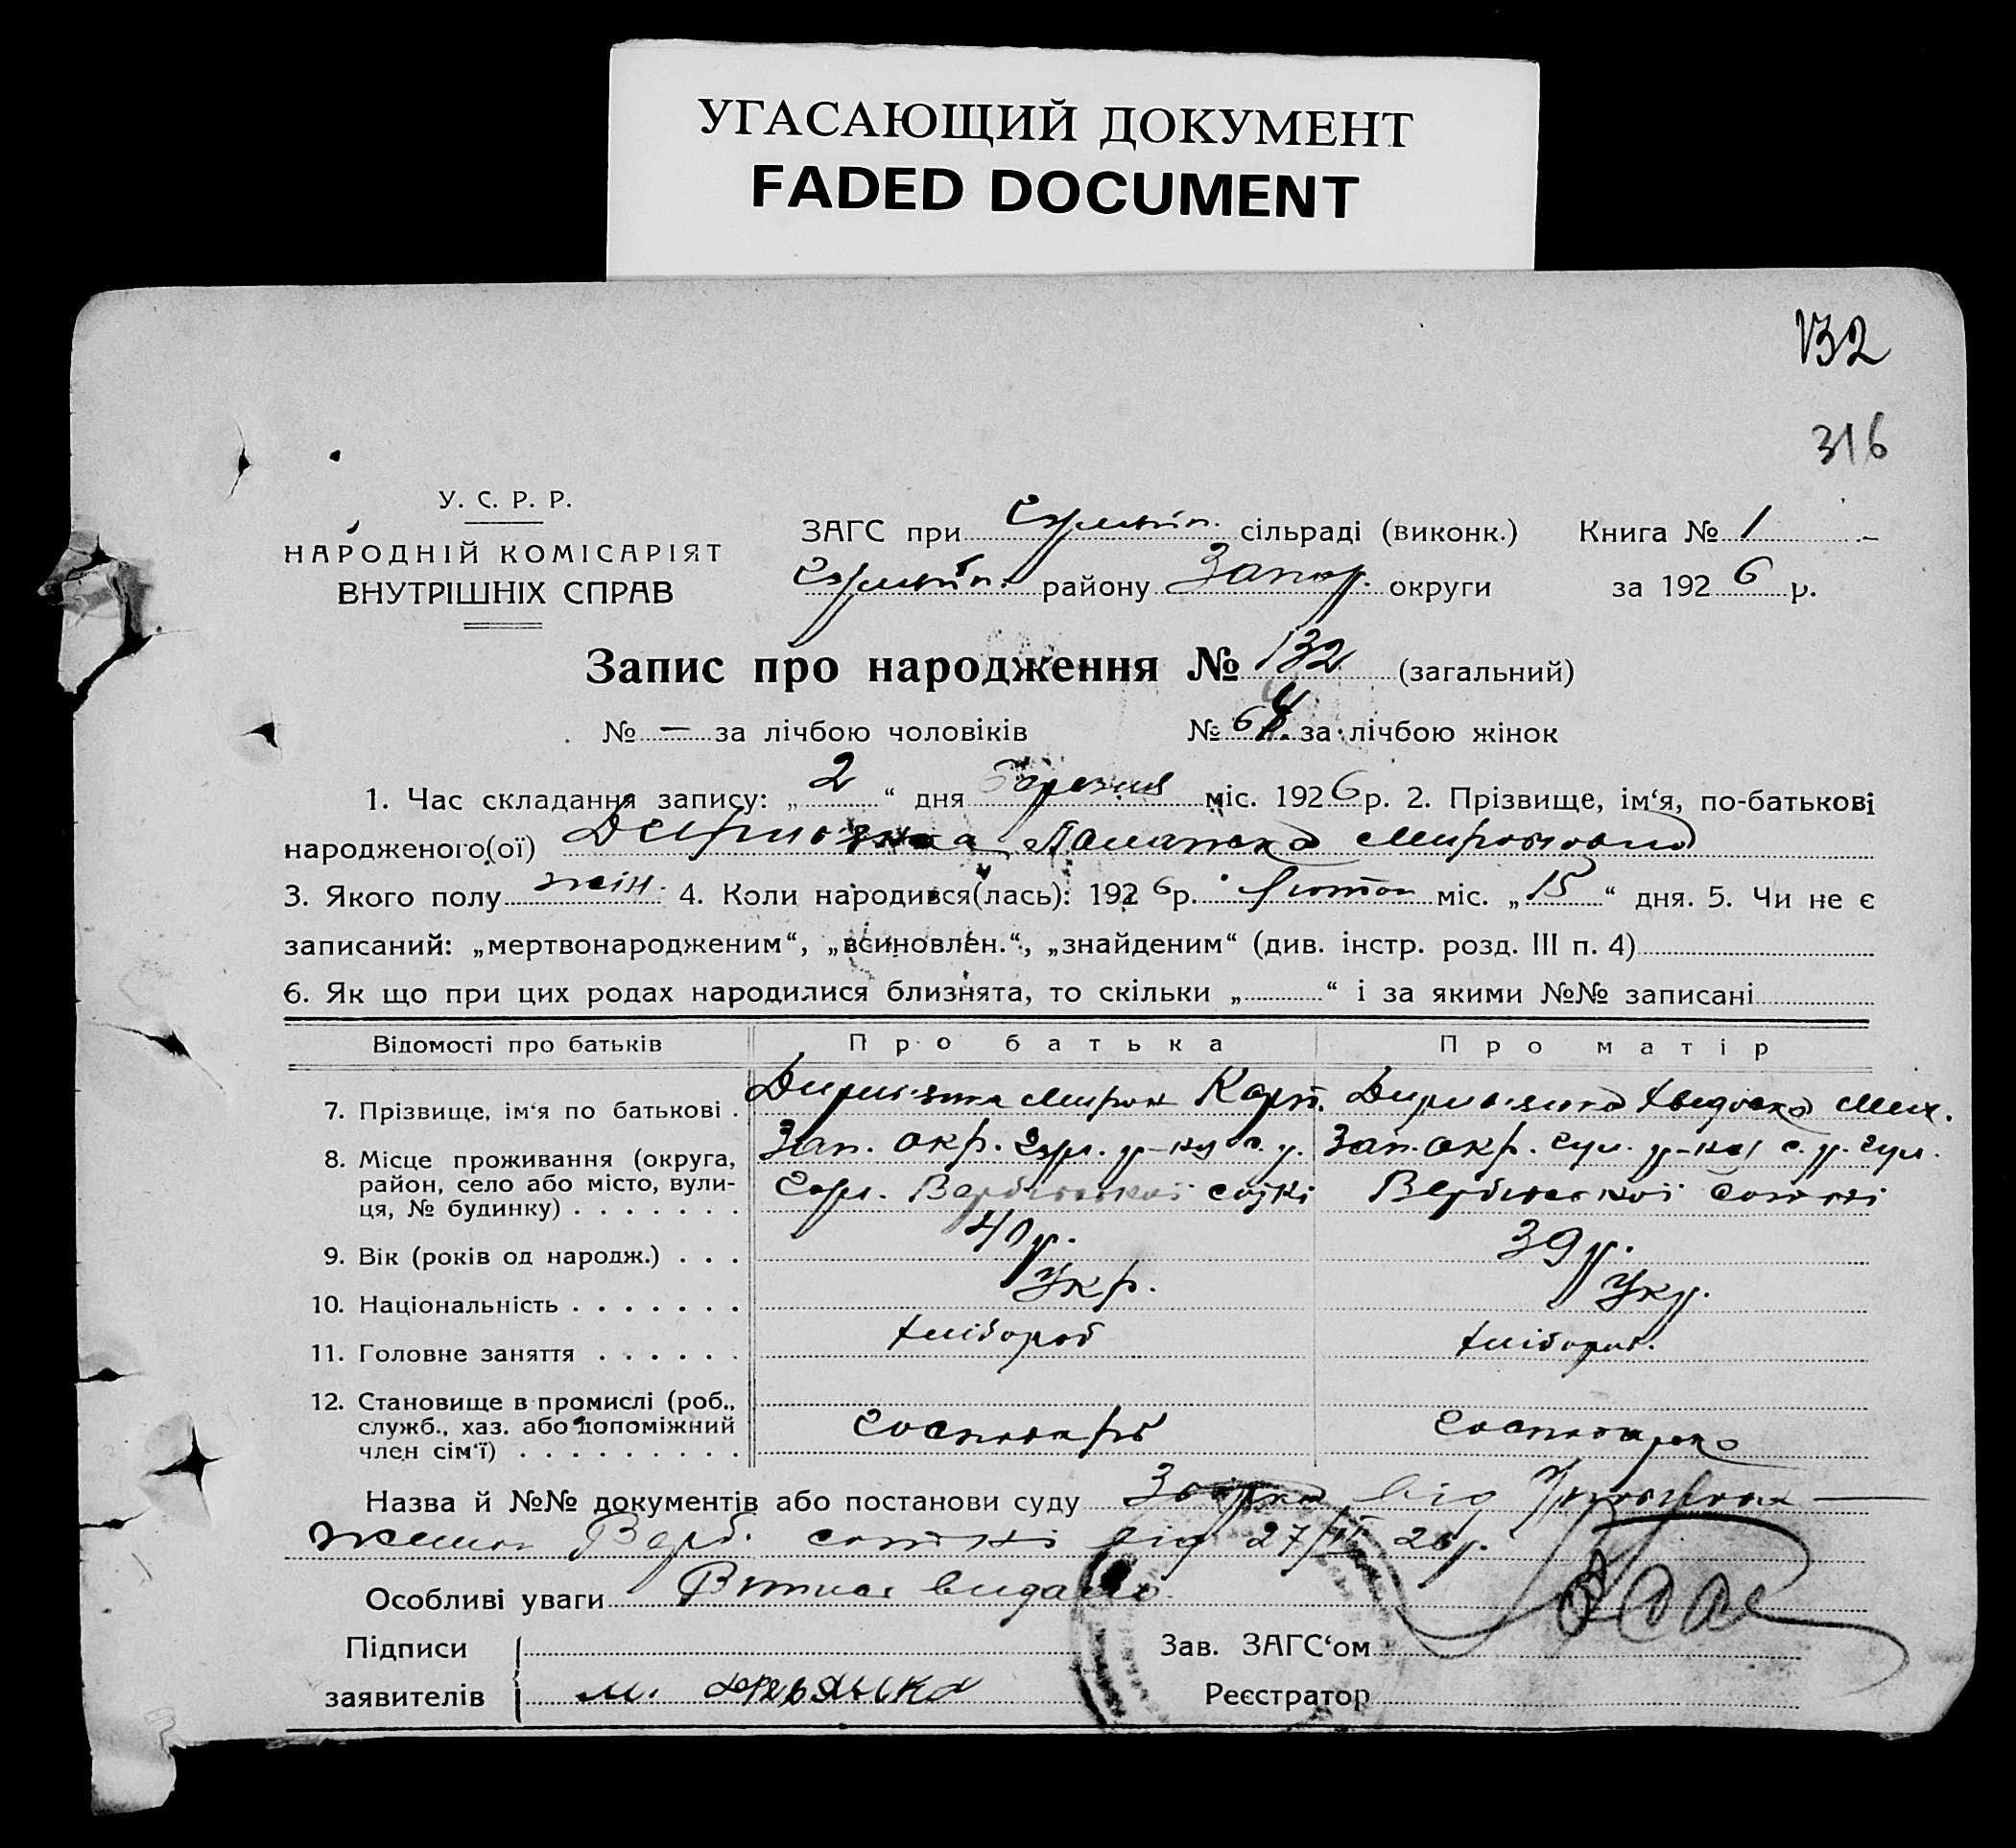 УГАСАЮЩИЙ ДОКУМЕНТ
FADED DOCUMENT
132
316
У. С. Р. Р.
НАРОДНІЙ КОМІСАРІЯТ
ВНУТРІШНІХ СПРАВ
ЗАГС при сільраді (виконк.) Книга № 1
району Запор. округи за 1926 р.
Запис про народження № 132 (загальний)
№ — за лічбою чоловіків № 64 за лічбою жінок
1. Час складання запису: „2“ дня березня міс. 1926 р. 2. Прізвище, ім‘я, по-батькові
народженого(ої) Мироновна
3. Якого полу жін. 4. Коли народився(лась): 1926 р. лютого міс. „15“ дня. 5. Чи не є
записаний: „мертвонародженим“, „всиновлен.“, „знайденим“ (див. інстр. розд. III п. 4)
6. Як що при цих родах народилися близнята, то скільки „ “ і за якими №№ записані
Відомості про батьків Про батька Про матір
7. Прізвище, ім‘я по батькові . Мирон Карп. Мих.
8. Місце проживання (округа, район, село або місто, вулиця, № будинку) . . . . . . . Зап. окр. р-ну с. Зап. окр. Гул. р-ну с. Гул.
Вербівської сотні Вербівської сотні
9. Вік (років од народж.) . . . 40 р. 39 р.
10. Національність . . . . . . . Укр. Укр.
11. Головне заняття . . . . . . хлібороб хлібороб.
12. Становище в промислі (роб., служб., хаз. або допоміжний член сім‘ї) . . . . . . . . . Господарь Господарка
Назва й №№ документів або постанови суду від
Верб. сотні від 27/II 26 р.
Особливі уваги видано
Підписи
заявителів М.
Зав. ЗАГС‘ом
Реєстратор